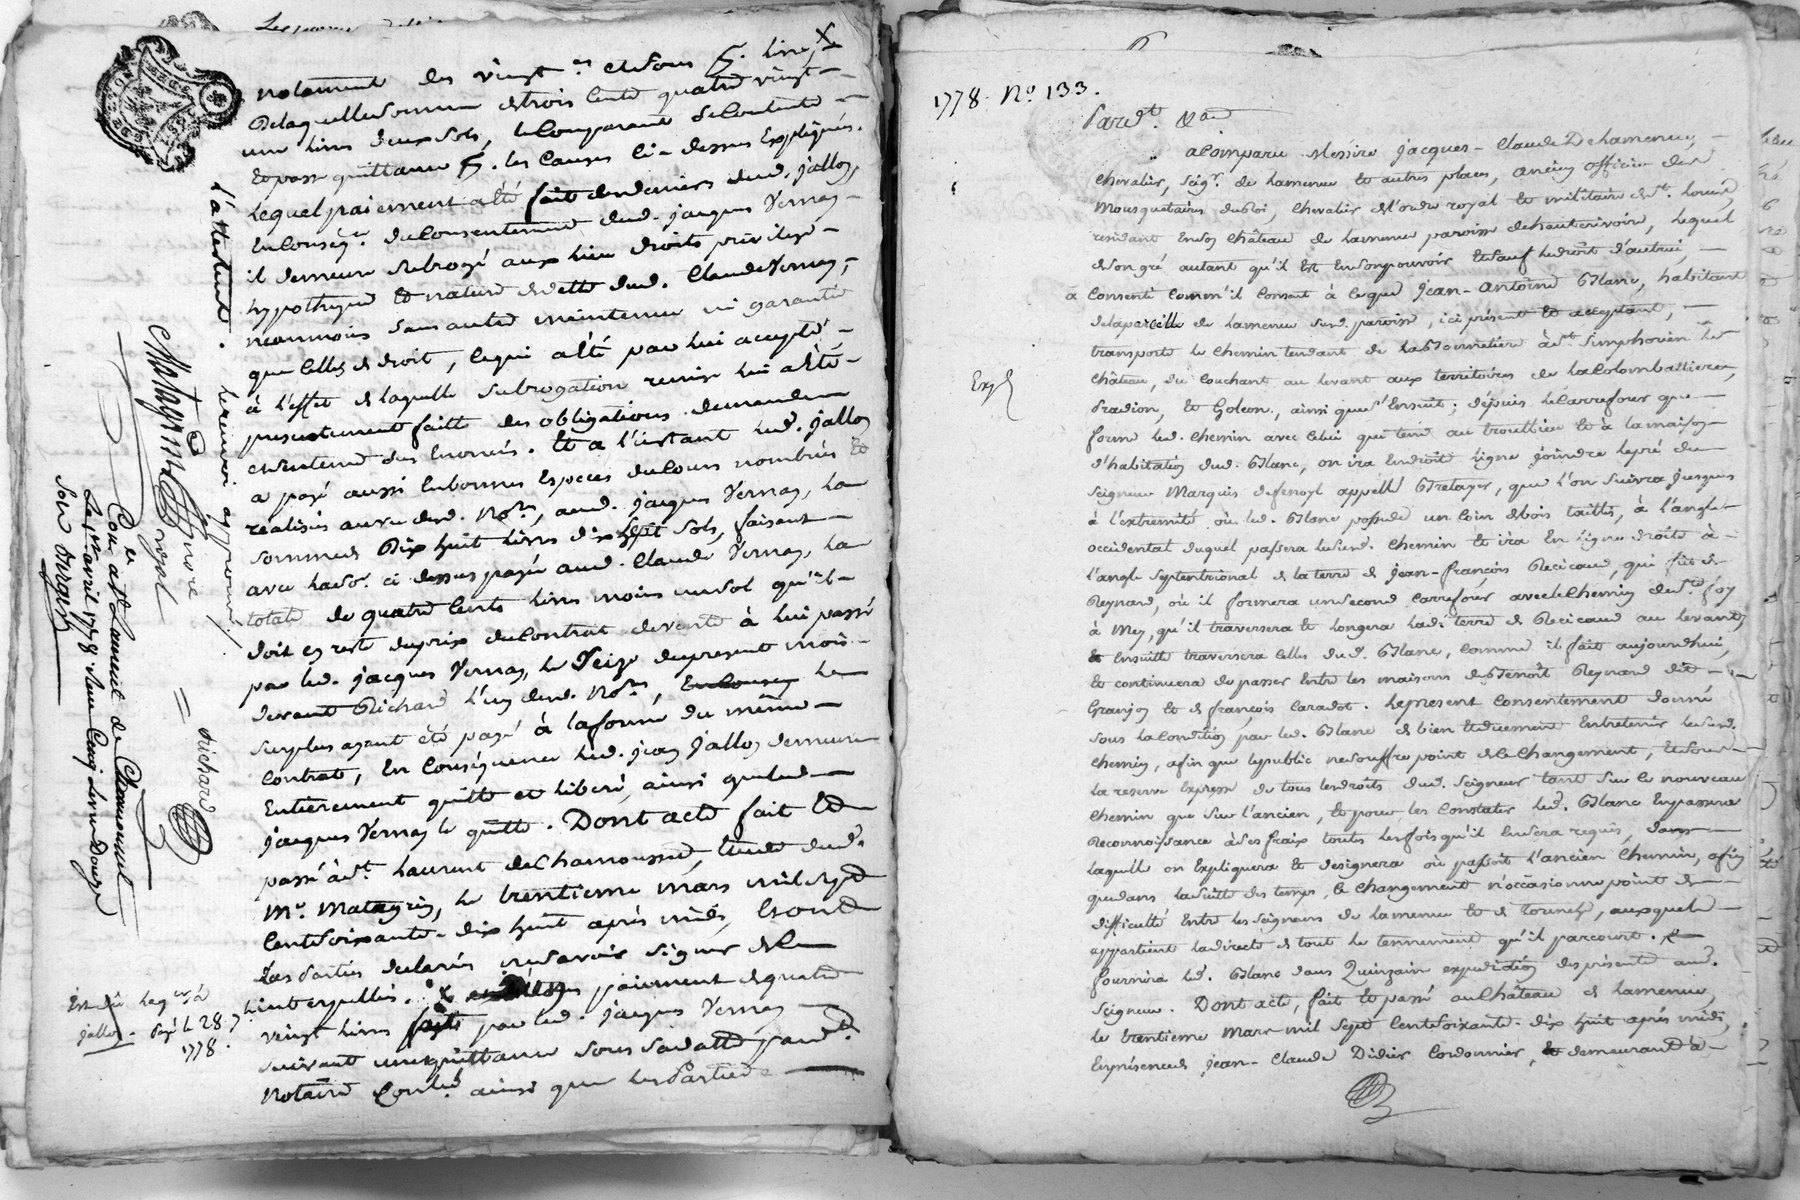 notamment des vingt et sous livres
De laquelle somme de trois cents quatre vingt
une livre deux sols, le Comparant se contente
Et passe quittance les causes ci-dessus Expliqués.
Lequel paiement a été fait des deniers dud. jallon,
En conséq.ce du Consentement dud. jacques Vernay
il demeure subrogé aux lieu droits privilege
hypotheque Et nature de dette dud. Claude Vernay,
neanmoins sans autre maintenue ni garantie
que celles de droit, ce qui a été par lui accepté
à l'effet de laquelle subrogation remise lui a été
presentement faitte des obligations demande
et sentence sus Enoncés. Et a l'instant led. jallon
a payé aussi En bonnes Especes du Cours nombrées Et
realisées au vu desd. No.res, aud. jacques Vernay, la
somme de Dix huit livres dix sept sols, faisant
avec la so. ci dessus payée aud. Claude Vernay, la
totale de quatre Cents livres moins un sol qu'il
doit en reste du prix du Contrat de vente à lui passé
par led. jacques Vernay, le seize du present mois
devant Richard l'un desd. No.res, le
surplus ayant été payé à la forme du même
Contrat, En Conséquence led. jean jallon demeure
Entièrement quitte et liberé, ainsi que led.
jacques Vernay le quitte. Dont acte fait Et
passé à St. Laurent de Chamousset, Etude dud.
Me. Matagrin, le trentieme mars mil sept
Cent soixante-dix huit après midi, Et ont
Les Parties declarés ne savoir signer de ce
Enquis et interpellés. paiement de quatre
vingt livres faits par led. jacques Vernay
suivant une quittance sous sa datte par d.
Notaire ainsi que les Parties
l'attestent. le renvoi approuvé.
Matagrin
Noire royal
Richard
Con.lé a St Laurent de Chamousset
Le 1er avril 1778. Reçu Cinq livres Douze
Sols Dirgesse
jallon. Payé le 28. 7
1778.
1778. No. 133.
Pard.t
a Comparu Messire jacques-Claude De Lamenue,
Chevalier, Seig.r de Lamenue Et autres places, ancien officier des
Mousquetaires du Roi, Chevalier de l'ordre royal Et militaire de St. Louis,
residant En son Château de Lamenue paroisse de hauterivoire, Lequel
de son gré autant qu'il Est En son pouvoir Et sauf le droit d'autrui,
à Consenti comm'il Consent à ce que jean-antoine Blanc, habitant
de la parcelle de Lamenue sud. paroisse, ici présent Et acceptant,
transporte le Chemin tendant de la Bournetiere à St Simphorien le
Château, du Couchant au levant aux territoires de la Colombattiere,
Pradion, Et Goleon, ainsi que s'Ensuit; depuis le Carrefour que
forme led. Chemin avec Celui qui tend au trouttieu Et à la maison
d'habitation dud. Blanc, on ira En droite ligne joindre le pré du
Seigneur Marquis de fenoyl appellé Bretayer, que l'on suivra jusques
à l'extremité où led. Blanc possede un Coin de bois taillis, à l'angle
occidental duquel passera le susd. Chemin Et ira En ligne droite à
l'angle septentrional de la terre de jean-françois Recicaud, qui fût de
Reynard, où il formera un second Carrefour avec le Chemin de Ste foy
à Mey, qu'il traversera Et Longera lad. terre de Recicaud au levant,
Ensuitte traversera celles dud. Blanc, comme il fait aujourdhui,
Et continuera de passer Entre les maisons de Benoît Reynard dit
Granjon Et de françois Caradot. Le present Consentement donné
sous la Condition par led. Blanc de bien Et duement Entretenir le susd.
Chemin, afin que le public ne souffre point de le Changement, Et sous
la reserve Expresse de tous les droits dud. Seigneur tant sur le nouveau
Chemin que sur l'ancien, Et pour les Constater led. Blanc En passera
Reconnoissance à ses fraix toutes les fois qu'il En sera requis, dans
laquelle on Expliquera Et designera où passoit l'ancien Chemin, afin
que dans la suitte des temps, le changement n'occasionne point de
difficulté Entre les Seigneurs de Lamenue Et de, auxquels
appartient la directe de tout le tennement qu'il parcourt.
fournira led. Blanc dans Quinzaine expedition des présentes aud.
Seigneur. Dont acte, fait Et passé au Château de Lamenue,
le trentieme Mars mil sept Cent soixante-dix huit après midi,
En présence de jean-Claude Didier Cordonnier, demeurant à